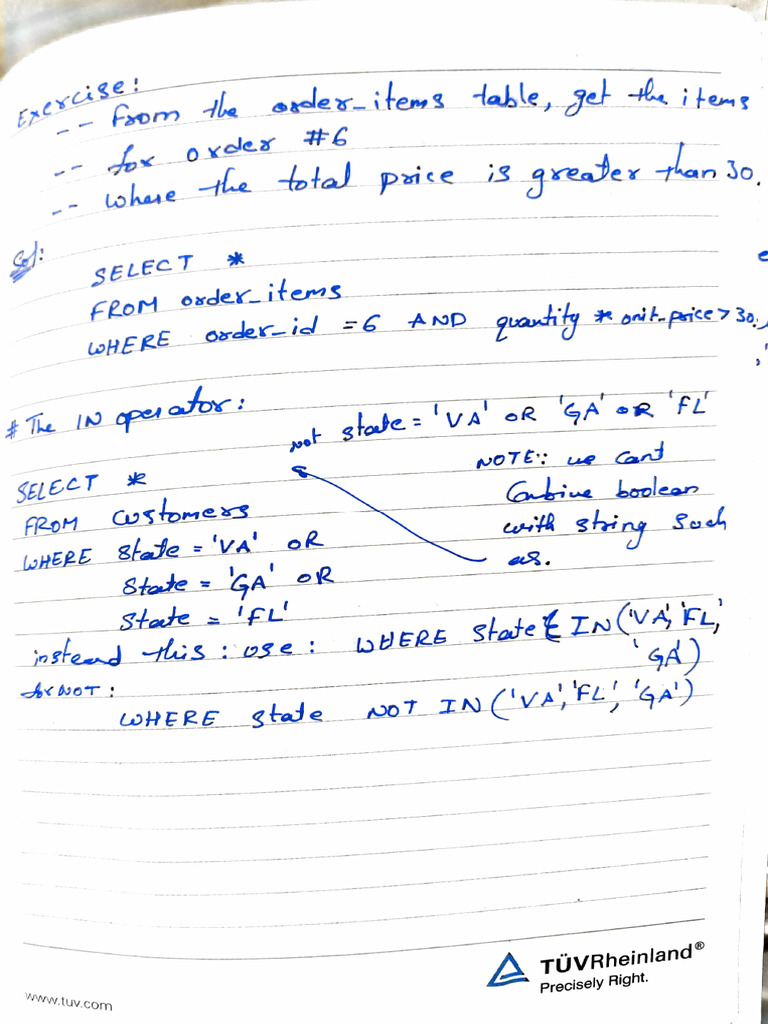 Exercise:
-- From the order_items table, get the items
-- for order #6
-- Where the total price is greater than 30.
Sol:
SELECT *
FROM order_items
WHERE order_id = 6 AND quantity * unit_price > 30.
# The IN operator:
Not state = 'VA' OR 'GA' OR 'FL'
NOTE:: we cant
Combine boolean
with string such
as.
SELECT *
FROM customers
WHERE state = 'VA' OR
state = 'GA' OR
state = 'FL'
instead this : use : WHERE state IN ('VA', 'FL',
'GA')
for NOT :
WHERE state NOT IN ('VA', 'FL', 'GA')
TÜVRheinland®
Precisely Right.
www.tuv.com